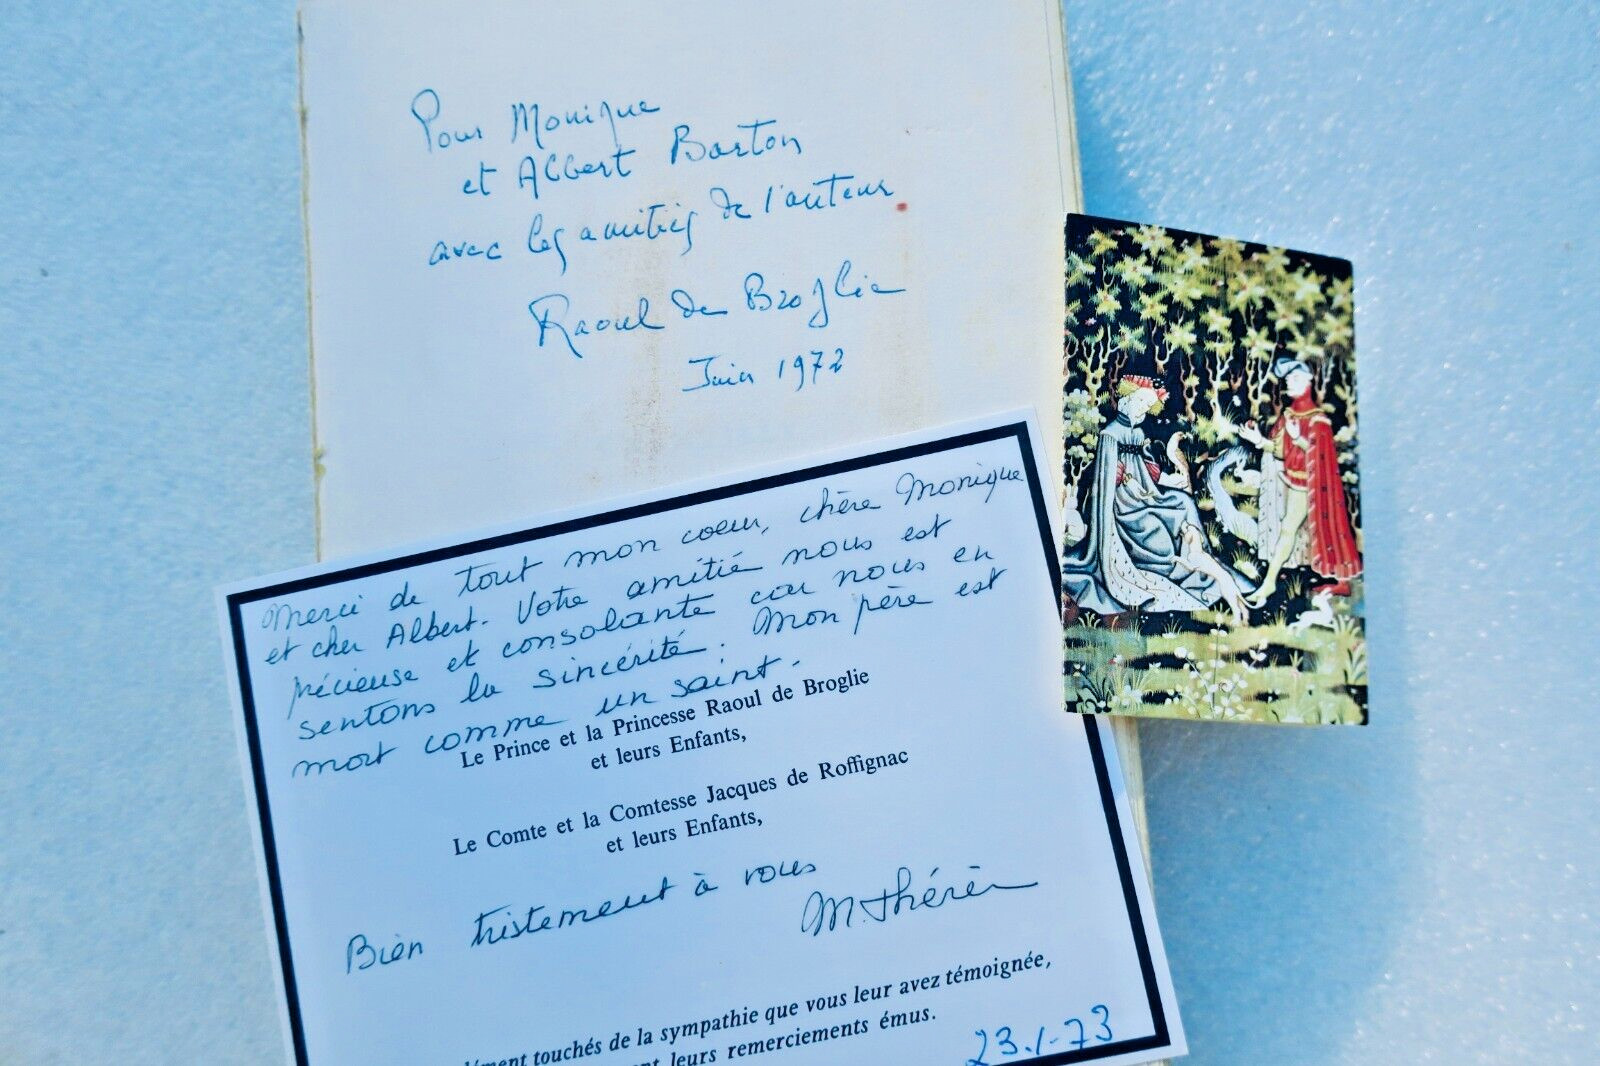 Pour Monique
et Albert Barton
avec les amitiés de l'auteur
Raoul de Broglie
Juin 1972
Merci de tout mon coeur, chère Monique
et cher Albert. Votre amitié nous est
précieuse et consolante car nous en
sentons la sincérité. Mon père est
mort comme un saint.
Le Prince et la Princesse Raoul de Broglie
et leurs Enfants,
Le Comte et la Comtesse Jacques de Roffignac
et leurs Enfants,
Bien tristement à vous
M. Thérèse
touchés de la sympathie que vous leur avez témoignée,
leurs remerciements émus.
23.1.73